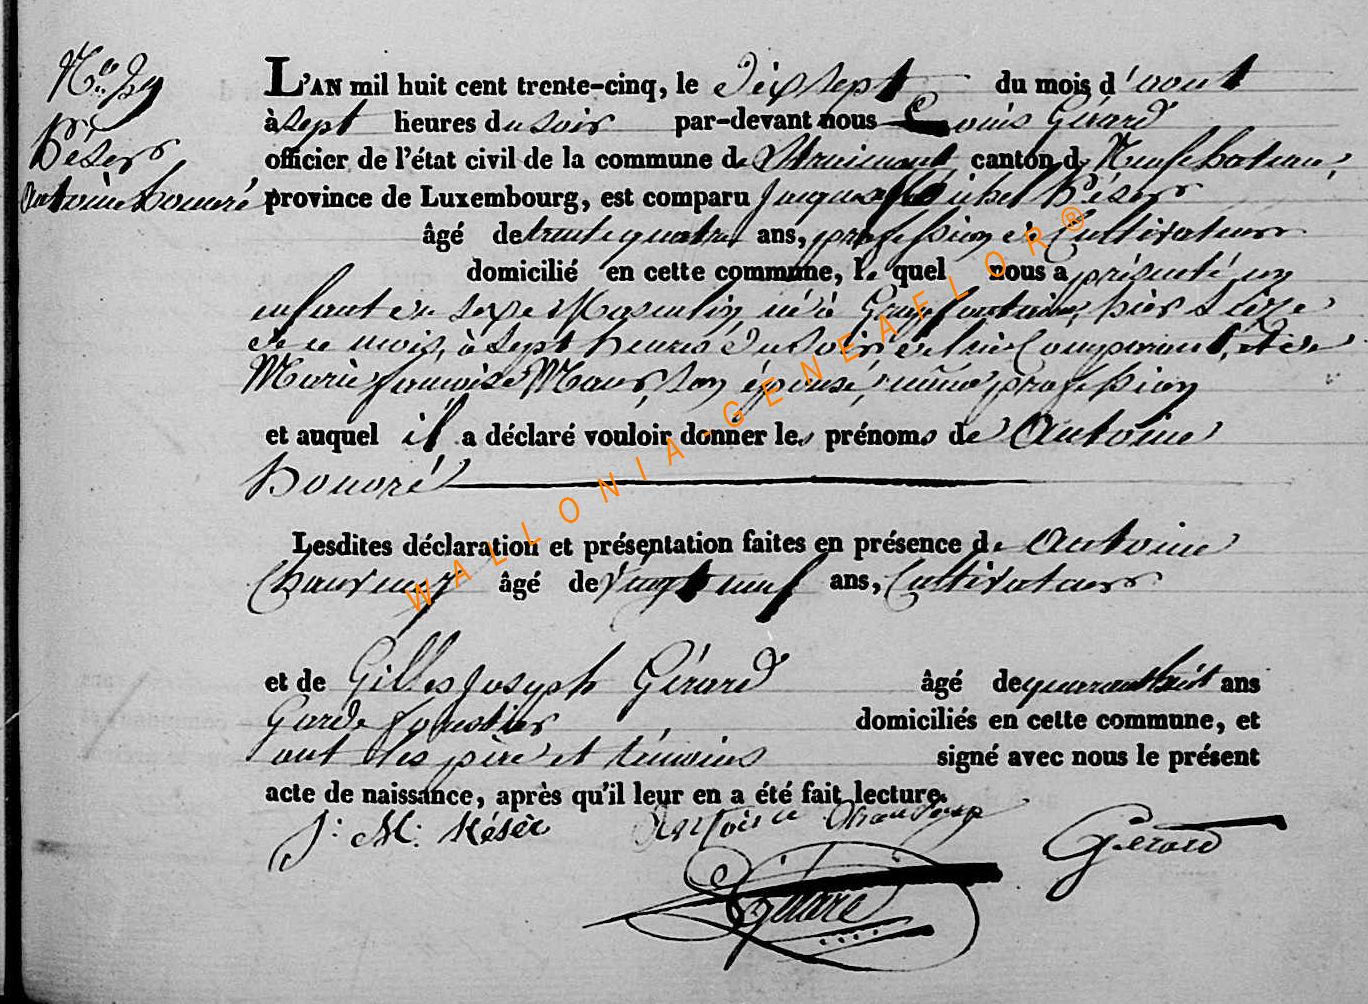 L'AN mil huit cent trente-cinq, le dixsept du mois d'aout
à sept heures du soir par-devant nous Louis Gérard
officier de l'état civil de la commune de Straimont canton de Neufchateau,
province de Luxembourg, est comparu Jacques Michel Késer
âgé de trente quatre ans, profession de Cultivateur
domicilié en cette commune, le quel nous a présenté un
enfant du sexe Masculin, né à Grapfontaine, hier seize
de ce mois, à sept heures du soir de lui Comparant, et de
Marie françoise Maus, son épouse, même profession
et auquel il a déclaré vouloir donner les prénoms de Antoine
honoré
Lesdites déclaration et présentation faites en présence de Antoine
Chauvaux âgé de vingt neuf ans, Cultivateur
et de Gilles Joseph Gérard âgé de quarante huit ans
Garde forestier domiciliés en cette commune, et
ont les père et témoins signé avec nous le présent
acte de naissance, après qu'il leur en a été fait lecture.
J: M: Késer Antoine Gérard
Gérard
No
Késer
Antoine honoré
WALLONIA-GENEAFLOR®